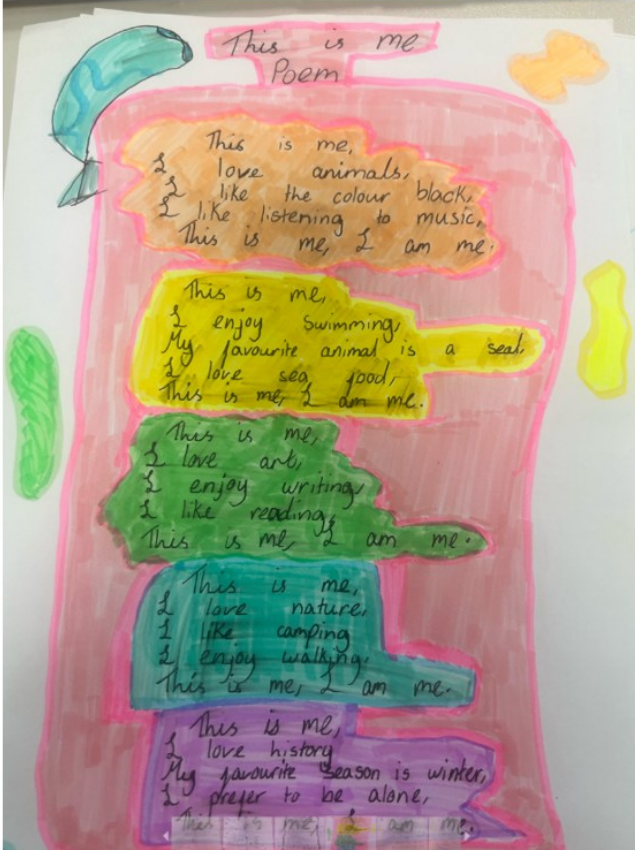 This is me
Poem
This is me,
I love animals,
I like the colour black,
I like listening to music,
This is me, I am me.
This is me,
I enjoy swimming,
My favourite animal is a seal,
I love sea food,
This is me, I am me.
This is me,
I love art,
I enjoy writing,
I like reading,
This is me, I am me.
This is me,
I love nature,
I like camping
I enjoy walking,
This is me, I am me.
This is me,
I love history
My favourite season is winter,
I prefer to be alone,
This is me, I am me.